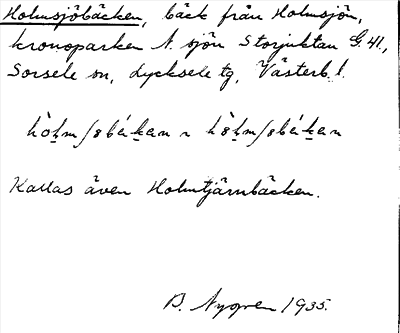 Holmsjöbäcken, bäck från Holmsjön,
kronoparken N. sjön Storjuktan G. 41,
Sorsele sn, Lycksele tg, Västerb. l.
Kallas även Holmtjärnbäcken.
B. Nygren 1935.